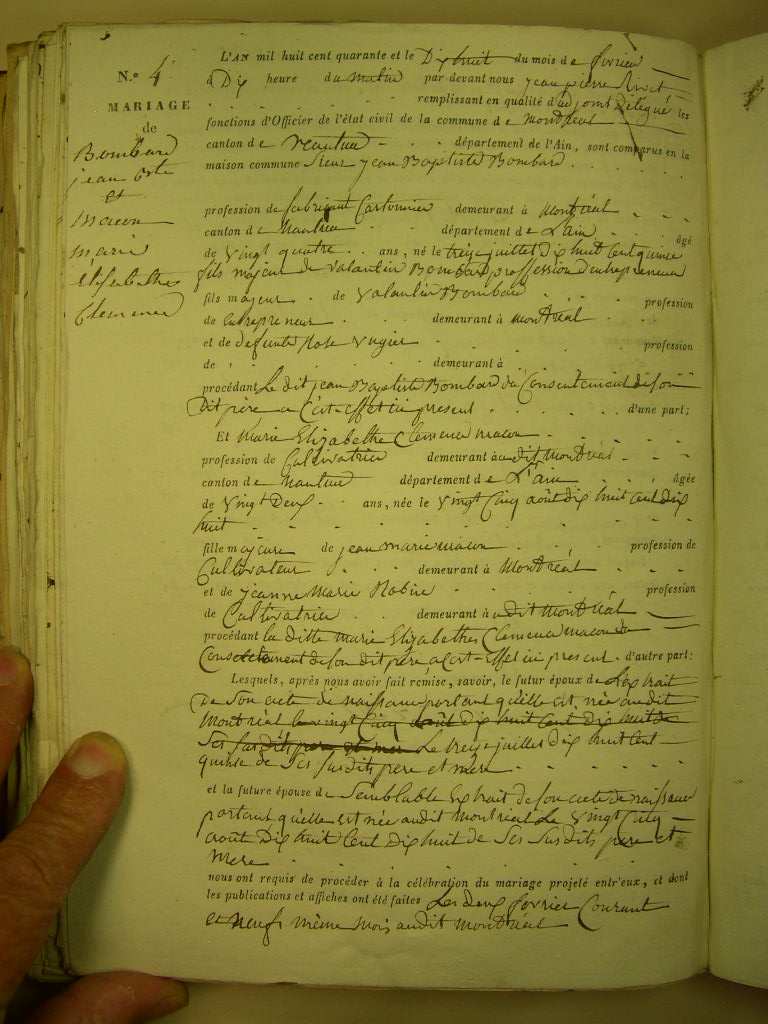 N.º 4
MARIAGE
de
Bombard
jean Bste
et
macon
marie
Elisabethe
Clemence
L'AN mil huit cent quarante et le Dix huit du mois de fevrier
à Dix heure du matin par devant nous jean pierre
remplissant en qualité d'adjoint délégué les
fonctions d'Officier de l'état civil de la commune de Montréal
canton de Nantua département de l'Ain, sont comparus en la
maison commune Sieur jean Baptiste Bombard
profession de fabriquant Cartonnier demeurant à Montréal
canton de Nantua département de L'ain âgé
de Vingt quatre ans, né le treize juillet dix huit Cent quinze
fils majeur de Valantin Bombard proffession d'entrepreneur
fils majeur de Valantin Bombard profession
de Entrepreneur demeurant à Montréal
et de defunte Rose Vugier profession
de demeurant à
procédant Le dit jean Baptiste Bombard du Consentement de son
Dit père a Cèt-effet ici present d'une part;
Et Marie Elizabethe Clemence macon
profession de Cultivatrice demeurant audit Montréal
canton de Nantua département de L'ain âgée
de Vingt Deux ans, née le Vingt Cinq août dix huit Cent dix
huit
fille majeure de jean marie macon profession de
Cultivateur demeurant à Montréal
et de jeanne Marie Robin profession
de Cultivatrice demeurant audit Montréal
procédant la ditte marie Elizabethe Clemence macon du
Consentement de son dit père a Cèt-Effet ici present d'autre part:
Lesquels, après nous avoir fait remise, savoir, le futur époux de L'extrait
De Son acte de naissance portant qu'elle est née audit
Montréal le vingt Cinq août dix huit Cent dix huit de
Ses Susdits pere et mere Le treize juillet dix huit Cent
quinse de Ses Susdits pere et mere
et la future épouse de Semblable Extrait de son acte de naissance
portant qu'elle est née audit montréal Le Vingt Cinq
août Dix huit Cent dix huit de Ses Susdits pere et
mere
nous ont requis de procéder à la célébration du mariage projeté entr'eux, et dont
les publications et affiches ont été faites Les deux fevrier Courant
et neuf même mois audit montréal